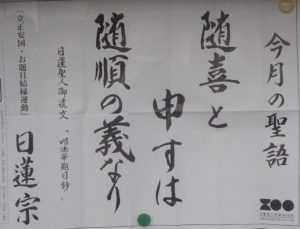 今月の聖語
随喜と
申すは
随順の義なり
日蓮聖人御遺文
「立正安国・お題目結縁運動」
日蓮宗